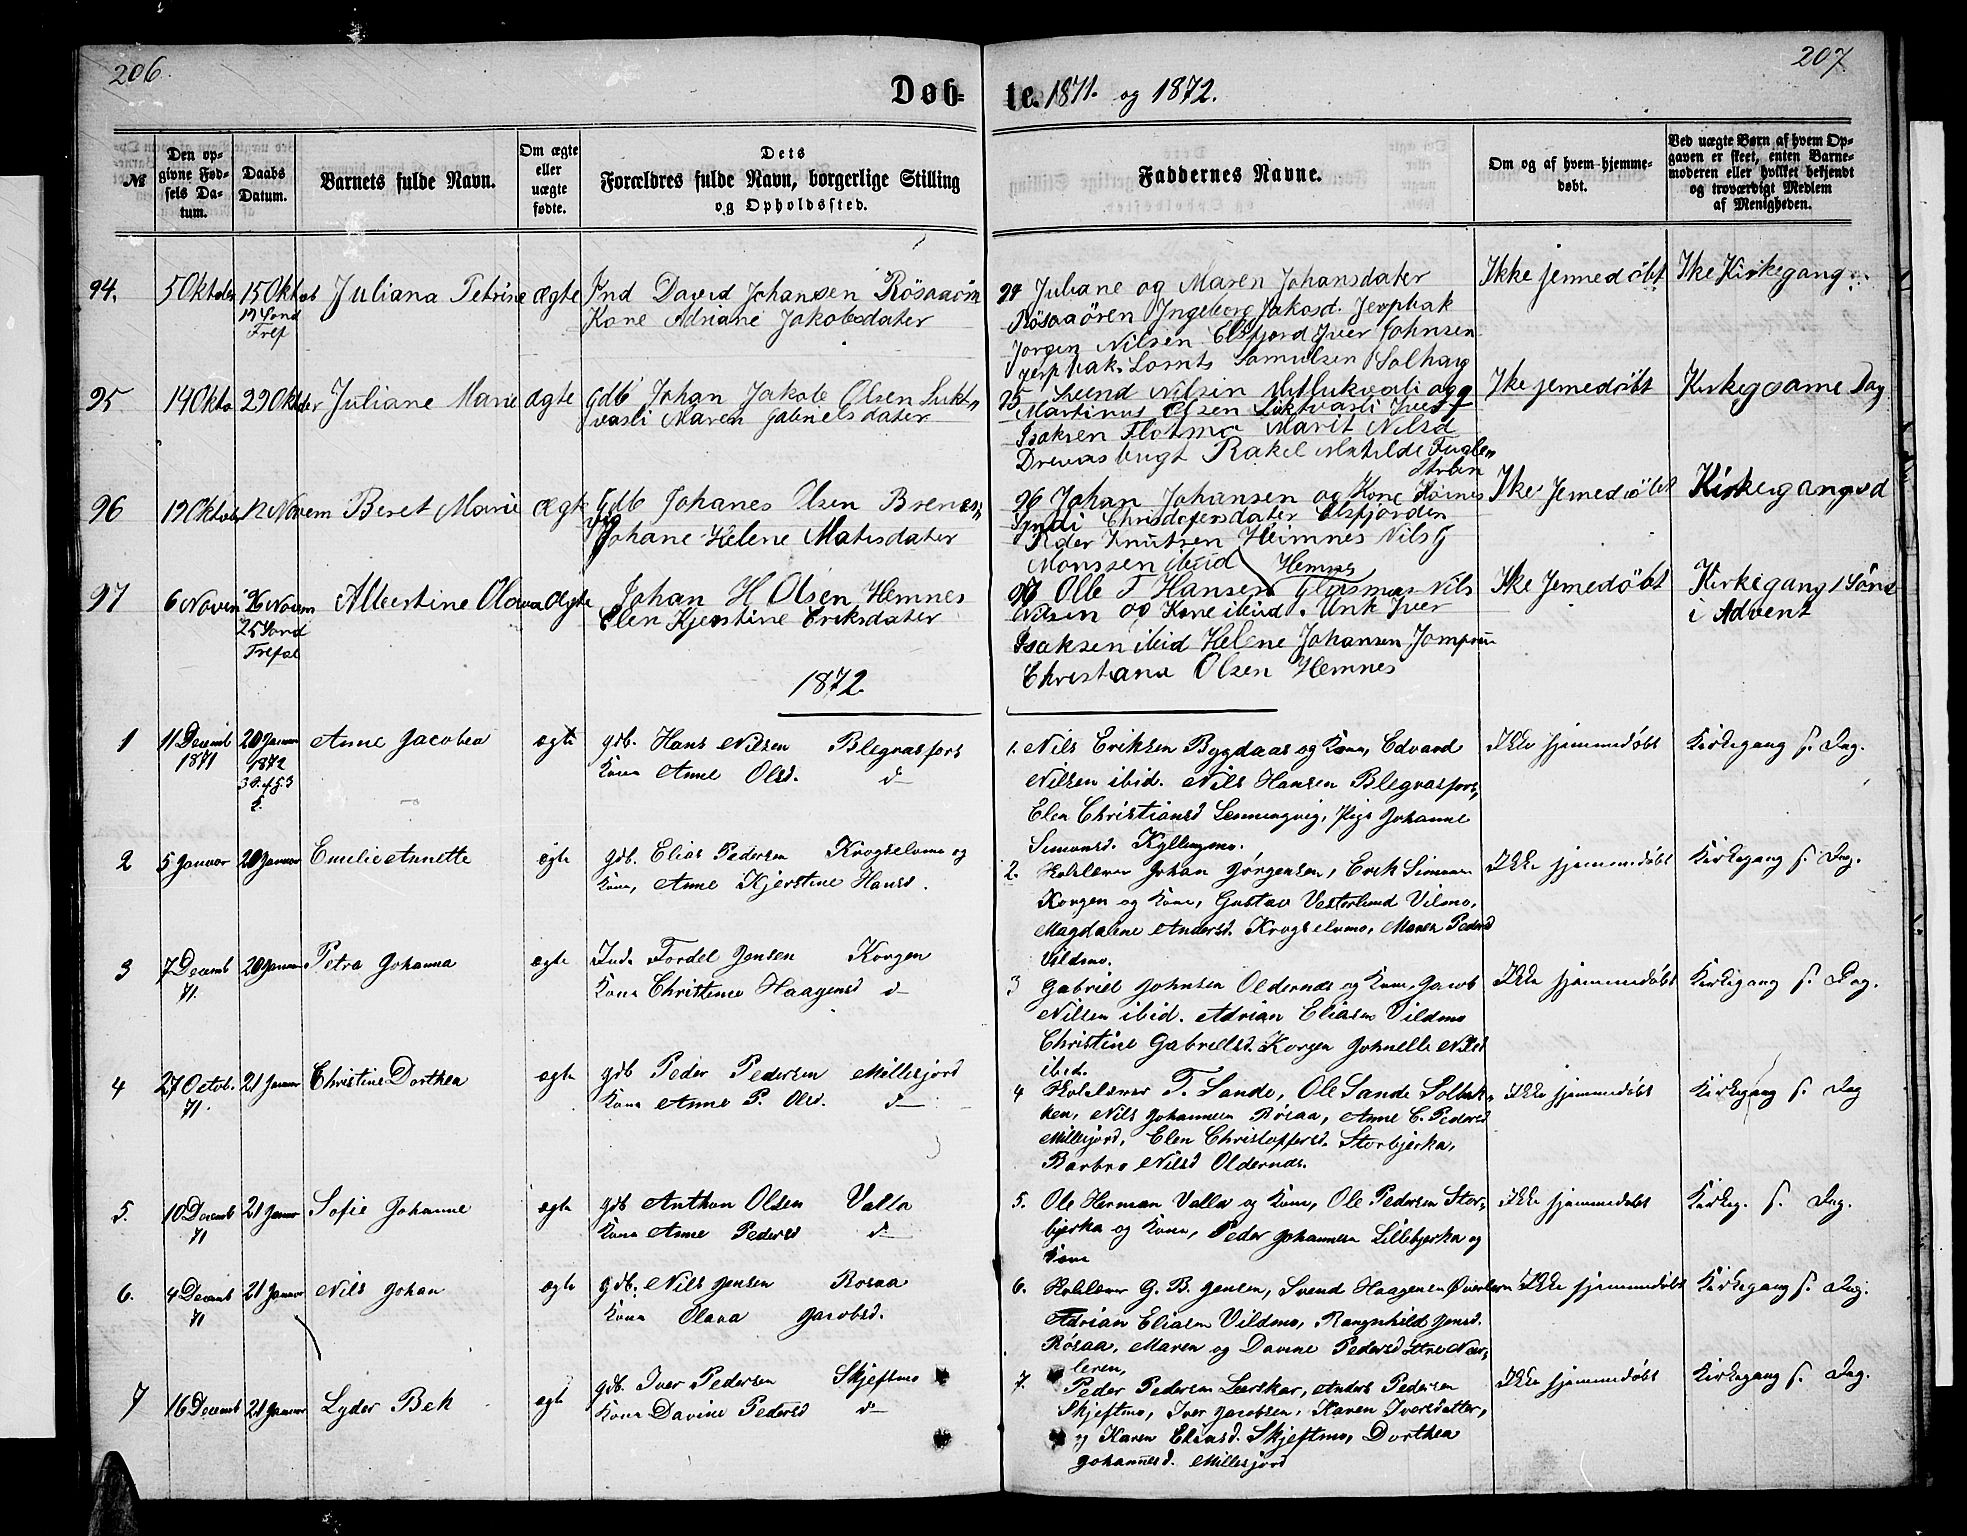 206.
207.
Døb-
te. 1871. og 1872.
№
Den op-
givne Fød-
sels Da-
tum.
Daabs
Datum.
Barnets fulde Navn.
Om ægte
eller
uægte
fødte.
Dets
Forældres fulde Navn, borgerlige Stilling
og Opholdssted.
Faddernes Navne.
Om og af hvem hjemme-
døbt.
Ved uægte Børn af hvem Op-
gaven er skeet, enten Barne-
moderen eller hvilket bekjendt
og troværdigt Medlem
af Menigheden.
94. 5 Oktober 15 Oktob Juliana Petrine ægte Ind David Johansen Rösaaörn
19 Sønd
Tref
Kone Adriane Jakobsdater
94 Juliane og Maren Johansdater
Rösaaören Ingeborg Jakosd. Jerpbak
Jorgen Nilsen Elsfjord Iver Johnsen
Jerpbak Lornts Samulsen Solhaug
Ikke jemmedöbt Ike Kirkegang
95 14 Okto 22 Oktober Juliane Marie ægte gdb Johan Jakob Olsen Lukt
vasli Maren Gabrielsdater
95 Svend Nilsen Luktvasli og
Martinus Olsen Luktvasli Iver
Isaksen Flotmo Marit Nilsd
Drevasbugt Rakel Matilde Fugle
Ike jemedöbt Kirkeg same Dag
96 19 Oktober 12 Novem Beret Marie ægte Gdb Johanes Olsen Brenes
Johane Helene Matisdater
96 Johan Johansen og Kone
Chrisdofersdater Elsfjorden
Peder Knutsen Heimnes Nils
Monssen ibiid
Ike Jemedöbt Kirkegang s d
97 6 Novem 26 Novem Albertine Olava ægte Johan H Olsen Hemnes
25 Sønd
Trefol
Elen Kjerstine Eriksdater
97 Olle T Hansen Hemnes Glasmas Nils
Nilsen og Kone ibiid. Unk Iver
Isaksen ibid Helene Johansen Jomfru
Christiana Olsen Hemnes
Ike Jemedöbt Kirkegang 1 Sönd
i Advent
1872.
1 11 Decemb 20 Januar Anne Jacobea ægte gdb. Hans Nilsen Blegvasfors
1871 1872
Kone Anne Olsd. d
1. Nils Eriksen Bygdaas og Kone, Edvard
Nilsen ibid. Nils Hansen Blegvasfors,
Elen Christiansd Lenningvig, Pige Johanne
Simonsd. Kyllingmo.
Ikke hjemmedøbt Kirkegang s. Dag.
2 5 Januar 20 Januar Emelie Annette ægte gdb. Elias Pedersen Krogselvmo og
Kone, Anne Kjerstine Hansd.
2. Kirkelærer Johan Jørgensen, Erik Simonsen
Korgen og Kone, Gustav Vesterlund Vilmo,
Magdalene Andersd. Krogselvmo, Maren Pedersd
Vildmo.
Ikke hjemmedøbt Kirkegang s. Dag.
3 7 Decemb 20 Januar Petra Johanna ægte Inds Fordel Jensen Korgen
71.
Kone Christine Haagensd d
3 Gabriel Johnsen Oldernes og Kone, Jacob
Nilsen ibid. Adrian Eliasen Vildmo
Christine Gabrielsd. Korgen Johnelle Nilsd
ibid.
Ikke hjemmedøbt Kirkegang s. Dag.
4 27 Octob. 21 Januar Christine Dorthea ægte gdb Peder Pedersen Millesjord
71.
Kone Anne P. Olsd. d
4 T. Sande, Ole Sande Solbak-
ken, Nils Johannesen Røsaa, Anne C. Pedersd
Millesjord, Elen Christoffersd. Storbjerka,
Barbro Nilsd Oldernes.
Ikke hjemmedøbt Kirkegang s. Dag
5. 10 Decemb 21 Januar Sofie Johanne ægte gdb Anthon Olsen Valla
71
Kone Anne Pedersd d
5. Ole Herman Valla og Kone, Ole Pedersen Stor-
bjerka og Kone, Peder Johannesen Lillebjerka og
Kone
Ikke hjemmedøbt Kirkeg. s. Dag.
6. 4 Decemb 21 Januar Nils Johan ægte gdb. Nils Jensen Røsaa
71
Kone Olava Jacobsd.
6. G. B. Jensen, Svend Haagensen Øverleren
Adrian Eliasen Vildmo, Rangnhild Jensd.
Røsaa, Maren og Davine Pedersd
leren,
Ikke hjemmedøbt Kirkegang s. Dag.
7 16 Decemb 21 Januar Lyder Bek ægte gdb. Iver Pedersen Skjeftmo
Kone Davine Pedersd d
7. Peder Pedersen Leerskar, Anders Pedersen
Skjeftmo, Iver Jacobsen, Karen Iversdatter,
og Karen Eliasd. Skjeftmo, Dorthea
Johannesd. Millesjord
Ikke hjemmedøbt Kirkegang s. Dag.